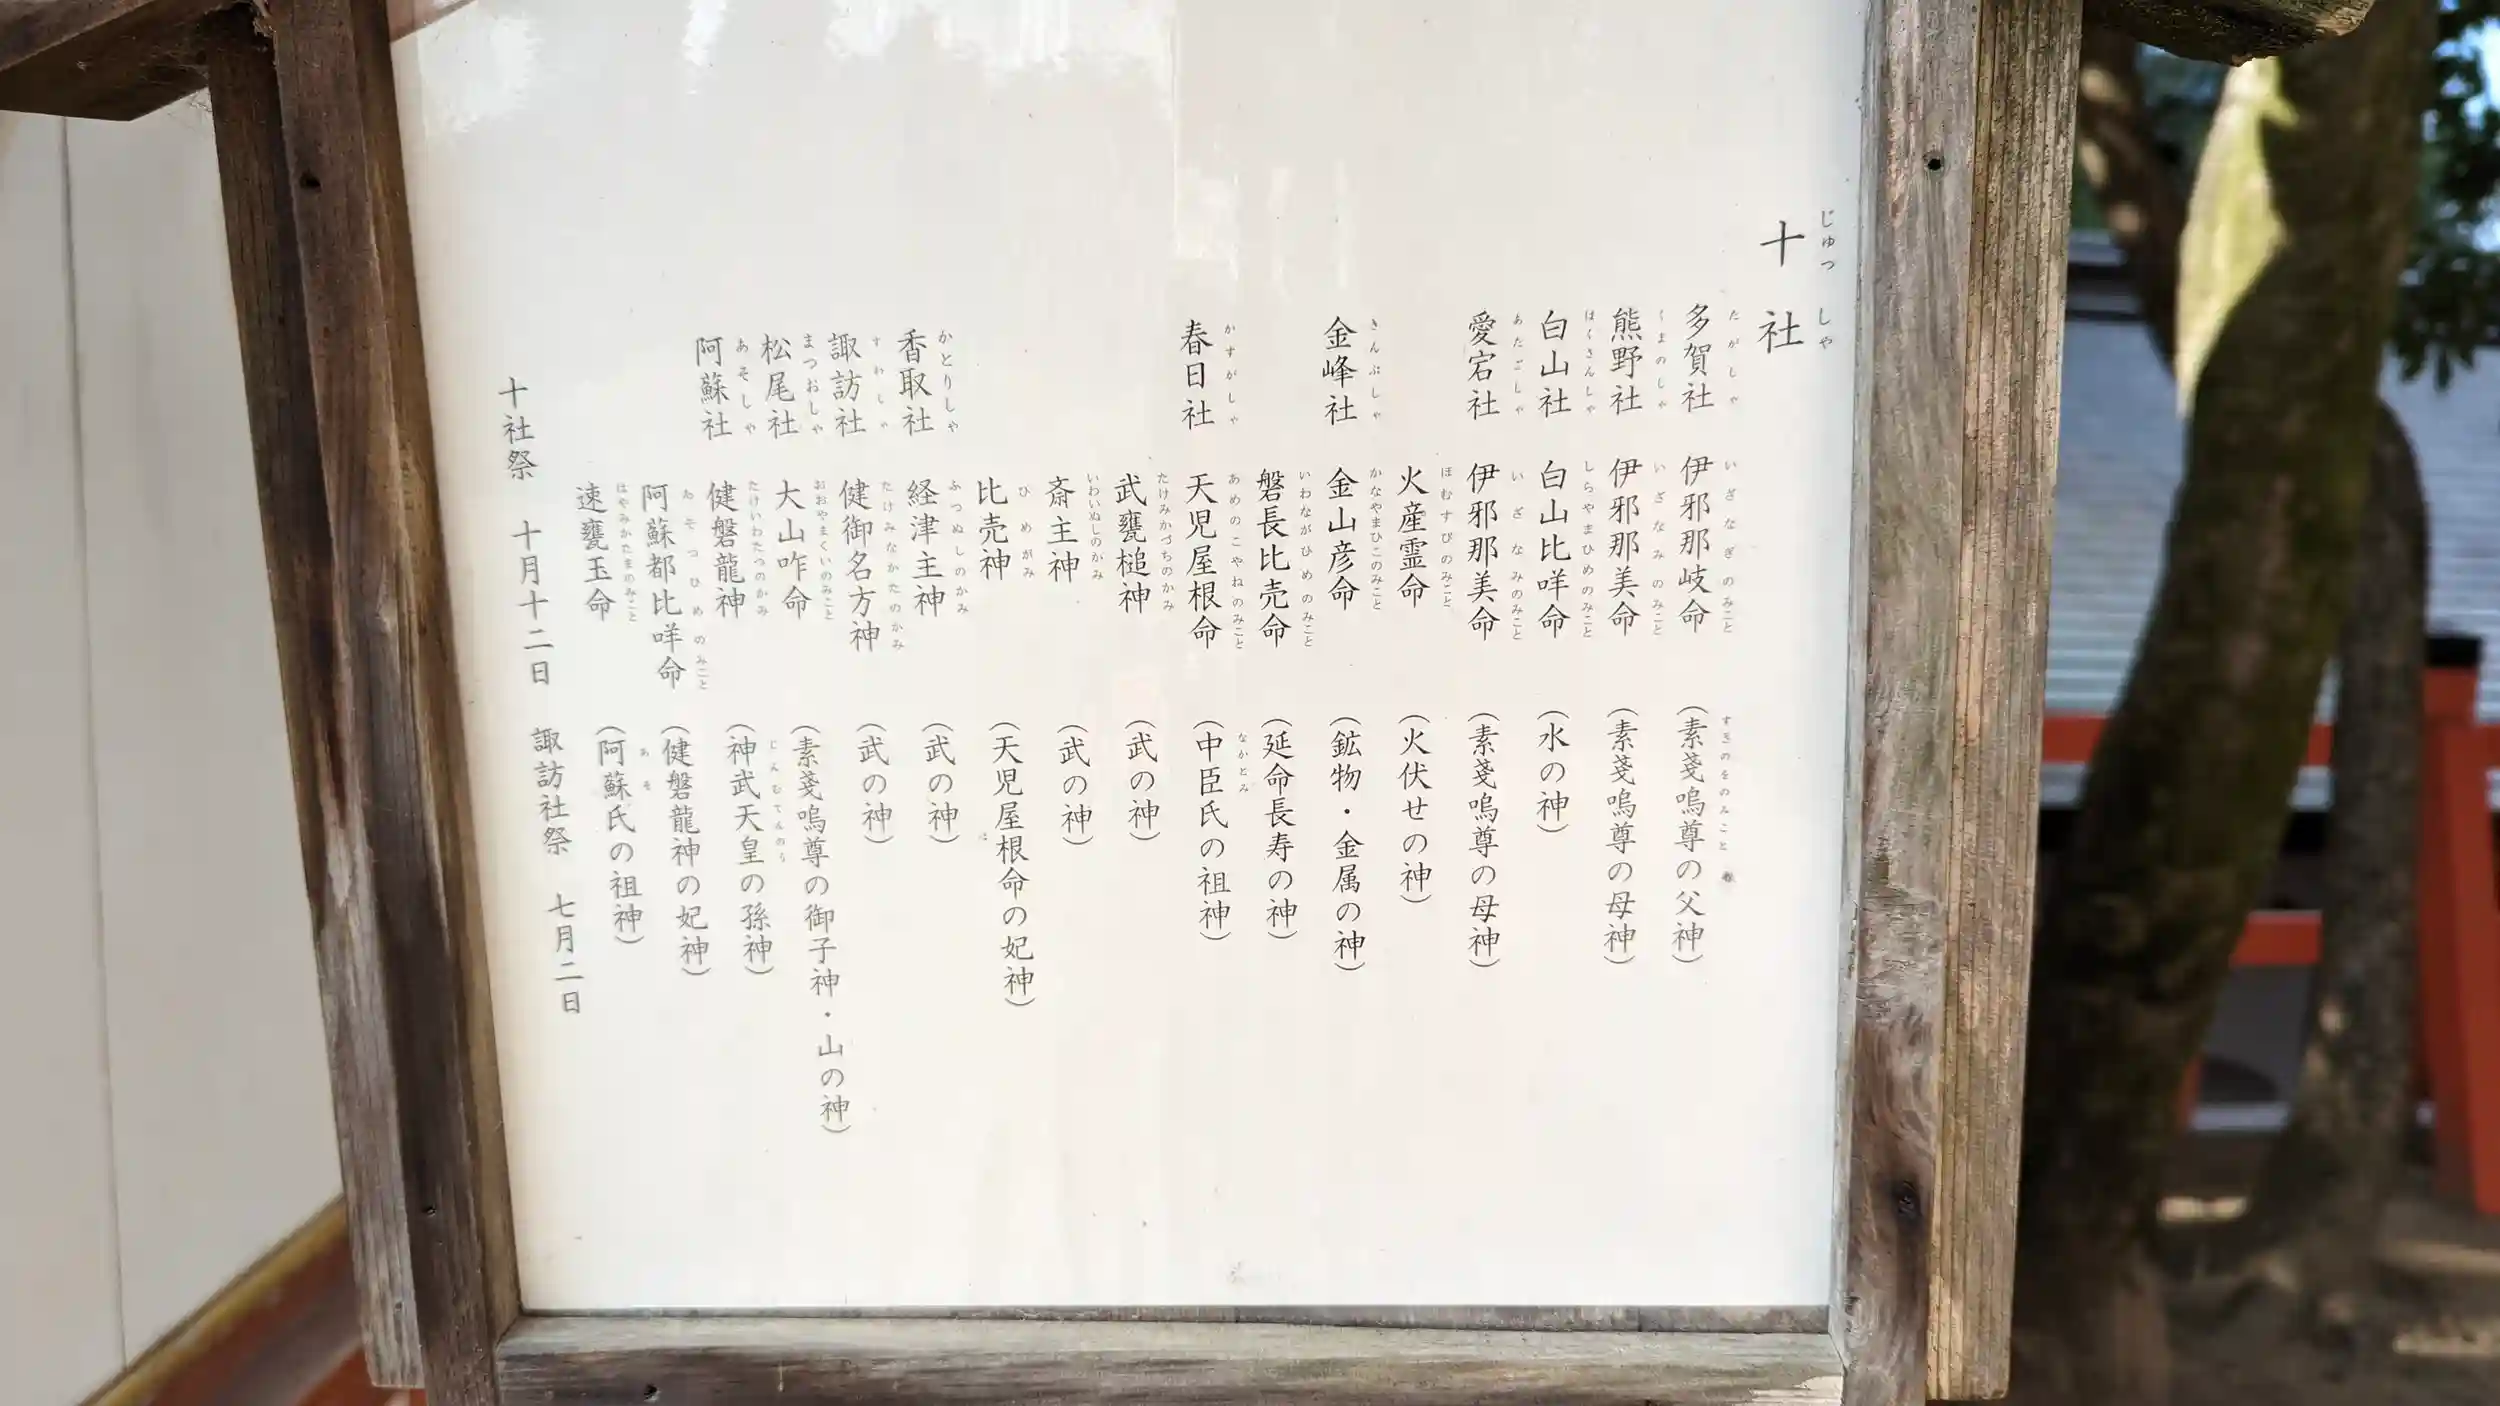 十社
じゅっしゃ
多賀社 伊邪那岐命 (素戔嗚尊の父神)
たがしゃ いざなぎのみこと すさのをのみこと
熊野社 伊邪那美命 (素戔嗚尊の母神)
くまのしゃ いざなみのみこと
白山社 白山比咩命 (水の神)
はくさんしゃ しらやまひめのみこと
愛宕社 伊邪那美命 (素戔嗚尊の母神)
あたごしゃ いざなみのみこと
火産霊命 (火伏せの神)
ほむすびのみこと
金峰社 金山彦命 (鉱物・金属の神)
きんぷしゃ かなやまひこのみこと
磐長比売命 (延命長寿の神)
いわながひめのみこと
春日社 天児屋根命 (中臣氏の祖神)
かすがしゃ あめのこやねのみこと なかとみ
武甕槌神 (武の神)
たけみかづちのかみ
斎主神 (武の神)
いわいぬしのがみ
比売神 (天児屋根命の妃神)
ひめがみ
香取社 経津主神 (武の神)
かとりしゃ ふつぬしのかみ
諏訪社 健御名方神 (武の神)
すわしゃ たけみなかたのかみ
松尾社 大山咋命 (素戔嗚尊の御子神・山の神)
まつおしゃ おおやまくいのみこと
阿蘇社 健磐龍神 (神武天皇の孫神)
あそしゃ たけいわたつのかみ じんむてんのう
阿蘇都比咩命 (健磐龍神の妃神)
あそつひめのみこと
速甕玉命 (阿蘇氏の祖神)
はやみかたまのみこと あそ
十社祭 十月十二日 諏訪社祭 七月二日